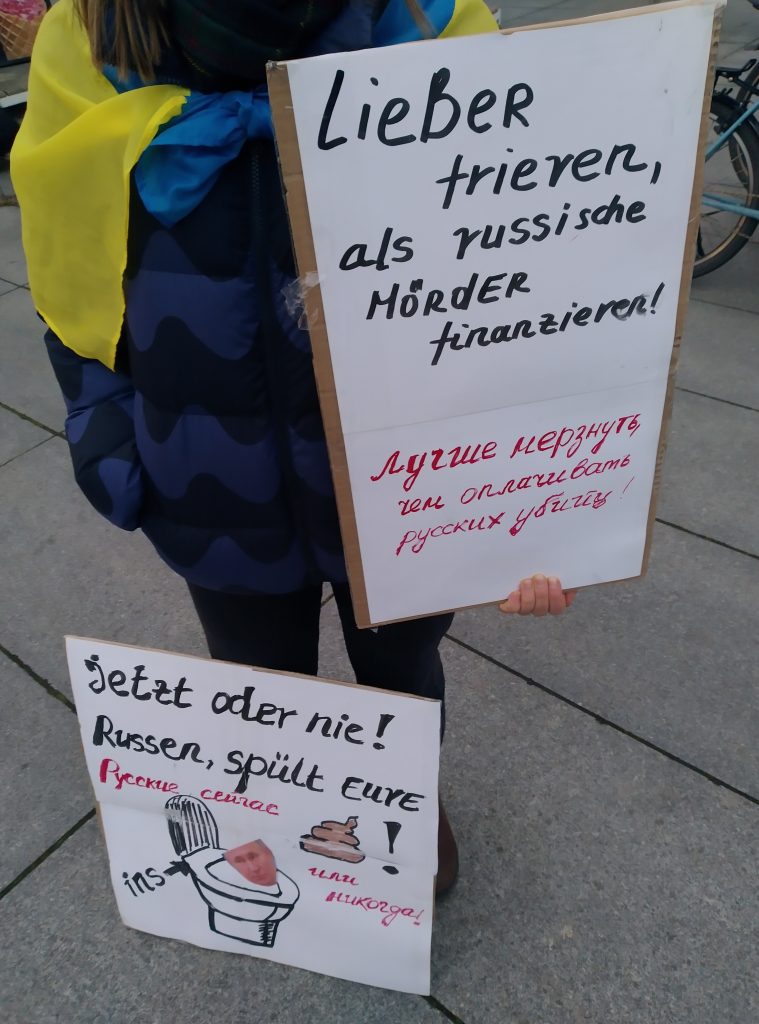 Lieber
frieren,
als russische
Mörder
finanzieren!
Лучше мерзнуть,
чем оплачивать
русских убийц!
jetzt oder nie!
Russen, spült Eure
Русские сейчас
!
ins
или
никогда!